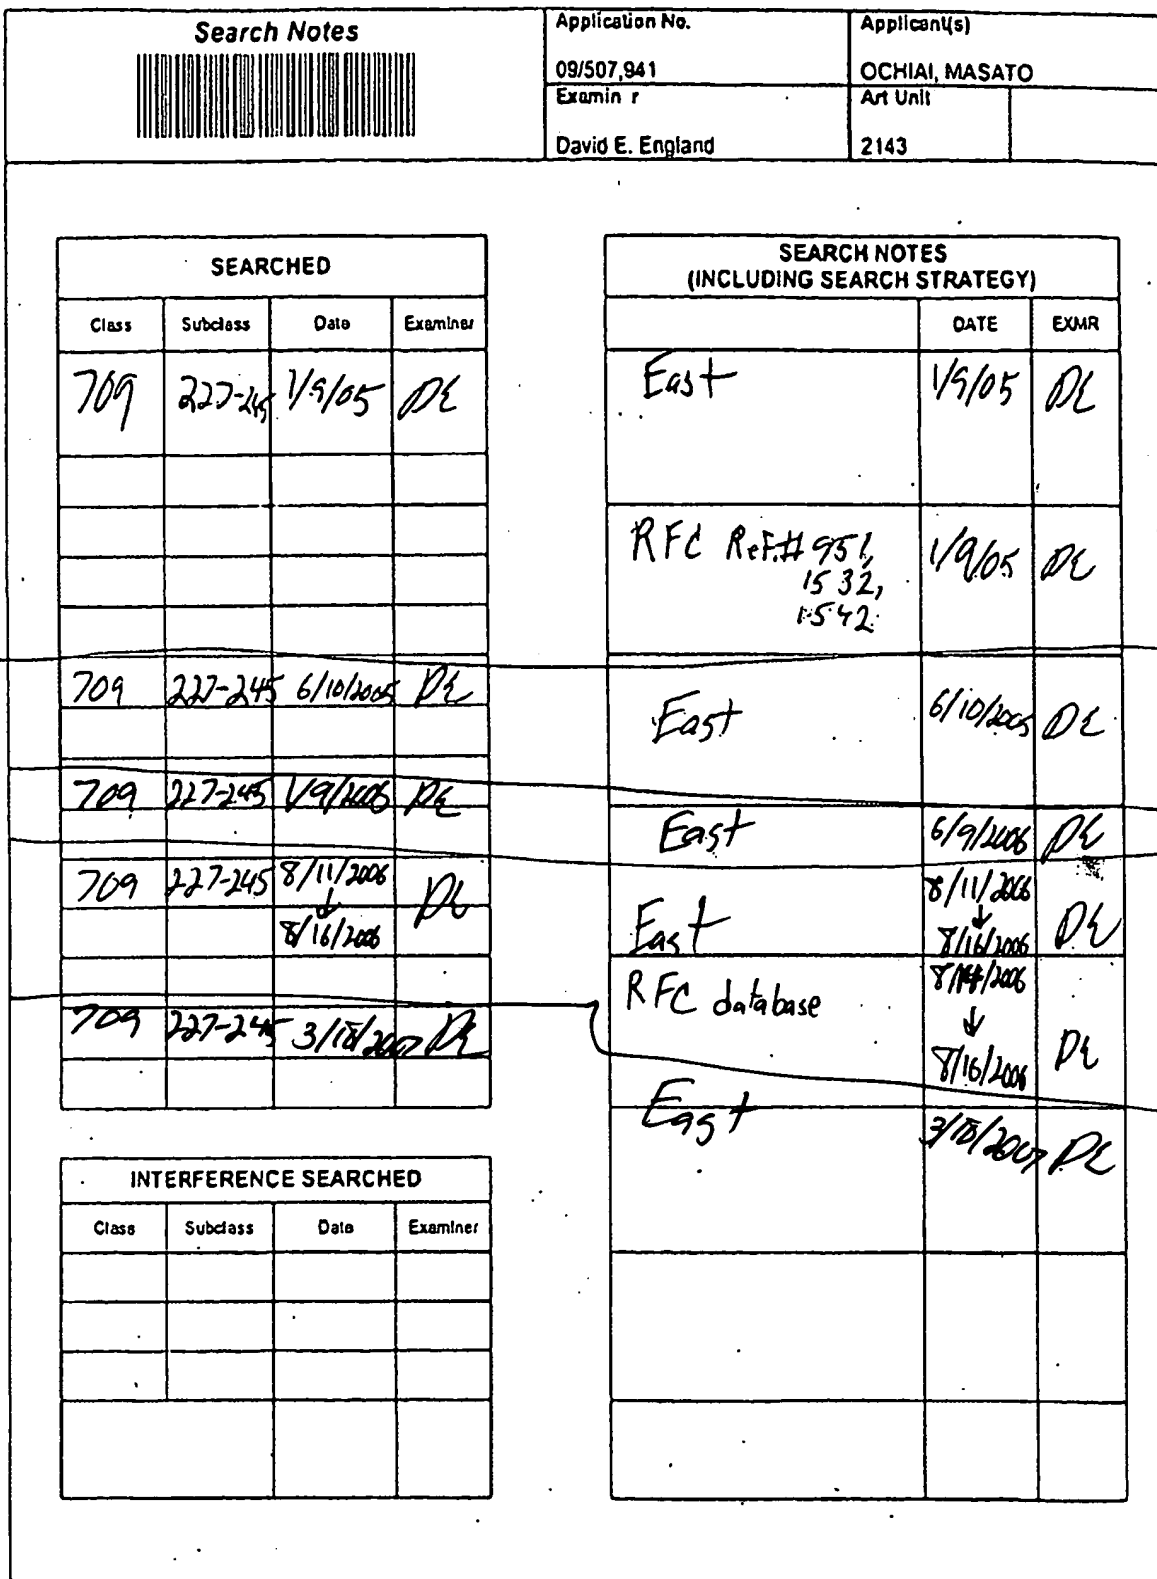 Search Notes
Application No.
Applicant(s)
09/507,941
OCHIAI, MASATO
Examin r
Art Unit
David E. England
2143
SEARCHED
Class Subclass Date Examiner
709 227-245 1/9/05 DE
709 227-245 6/10/2005 DE
709 227-245 1/9/2006 DE
709 227-245 8/11/2006 DE
↓
8/16/2006
709 227-245 3/18/2007 DE
INTERFERENCE SEARCHED
Class Subclass Date Examiner
SEARCH NOTES
(INCLUDING SEARCH STRATEGY)
DATE EXMR
East 1/9/05 DE
RFC Ref.# 951, 1/9/05 DE
1532,
1542
East 6/10/2005 DE
East 6/9/2006 DE
8/11/2006
↓
East 8/16/2006 DE
RFC database 8/14/2006
↓
8/16/2006 DE
East 3/18/2007 DE